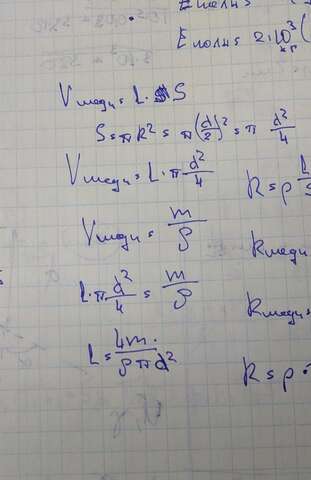 E полн =
E полн = 2·10³ (
кг
V меди = L · S
S = πR² = π(d/2)² = π d²/4
V меди = L · π d²/4
R = ρ L/S
V меди = m/ρ
R меди
L · π d²/4 = m/ρ
R меди =
L = 4m/ρπd²
R = ρ ·